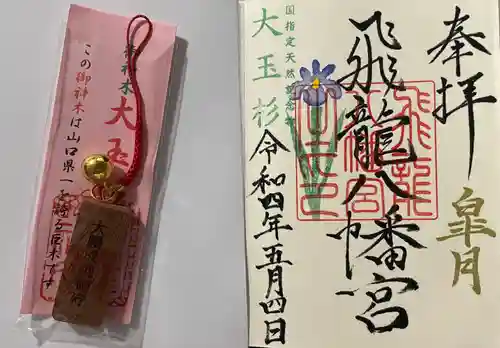 御神木
大玉
この御神木は山口県一を誇る巨木です
奉拝
皐月
飛龍八幡宮
国指定天然記念物
大玉杉
令和四年五月四日